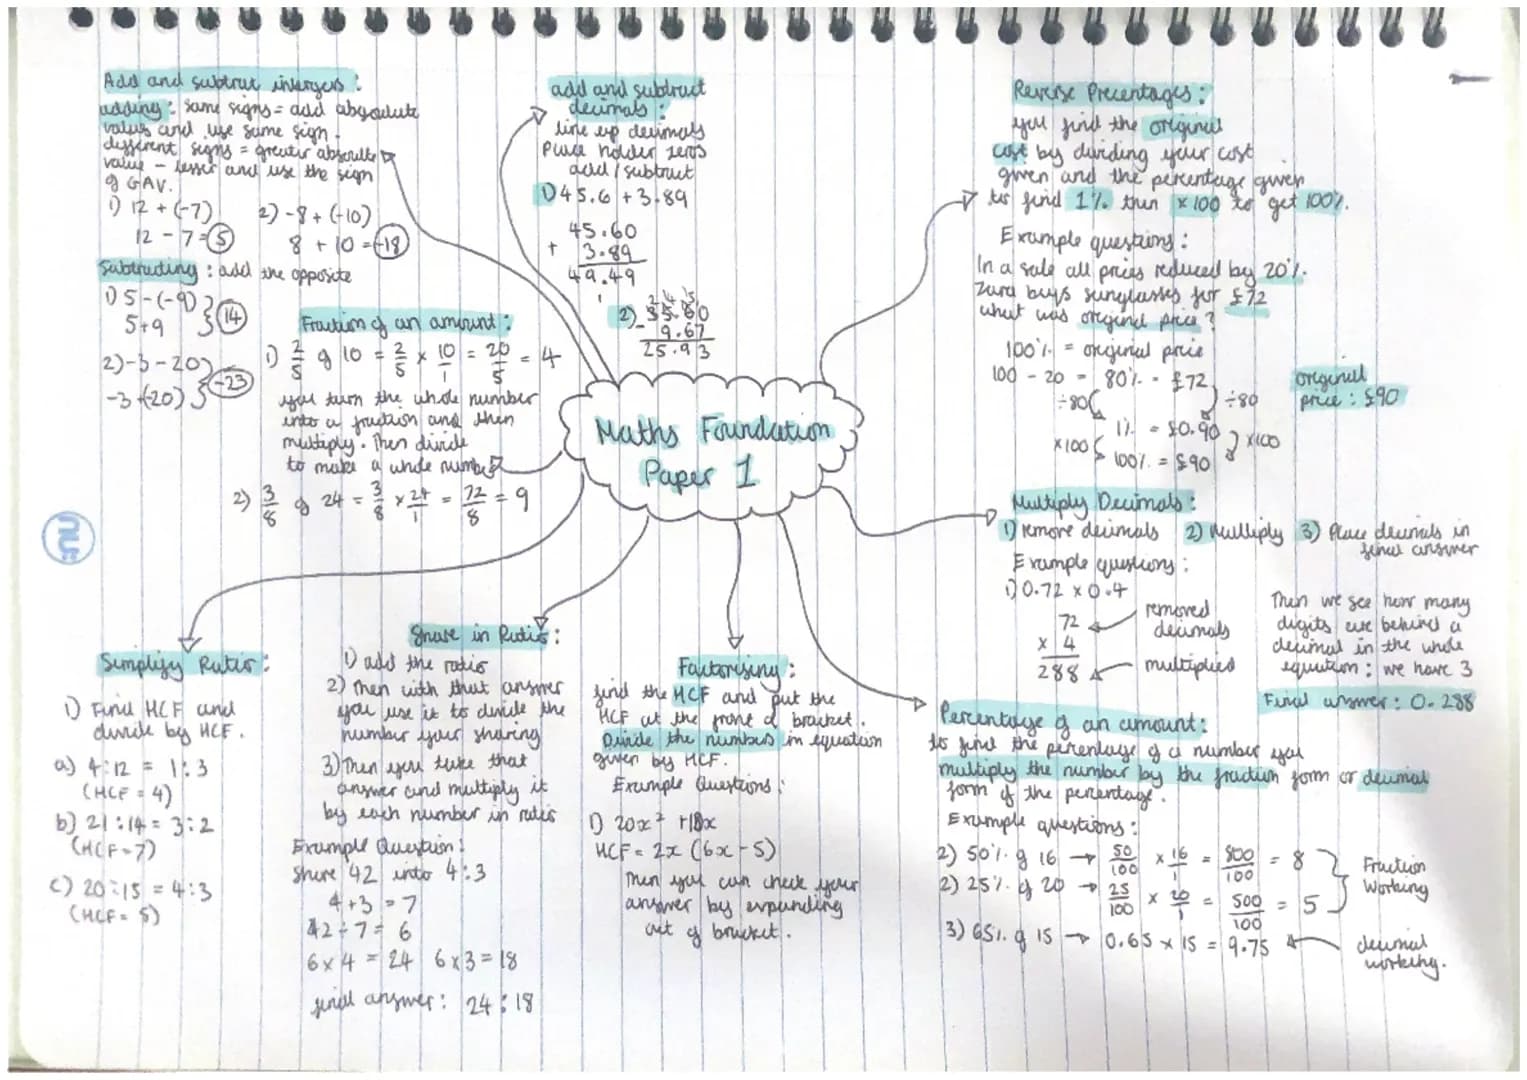 Add and subtract intergers :
adding : same signs = add absoulute
values and use same sign.
different signs = greater absoulte
value - lesser and use the sign
of GAV.
1) 12 + (-7)
12 - 7 = 5
2) -8 + (-10)
8 + 10 = -18
Subtracting : add the opposite
1) 5 - (-9)
5 + 9
14
2) -3 - 20
-3 + (-20)
-23
Fraction of an amount :
1) 2/5 of 10 = 2/5 x 10/1 = 20/5 = 4
you turn the whole number
into a fraction and then
multiply. Then divide
to make a whole number
2) 3/8 of 24 = 3/8 x 24/1 = 72/8 = 9
add and subtract
decimals :
line up decimals
Place holder zeros
add / subtract
1) 45.6 + 3.89
45.60
+ 3.89
49.49
1
2) 35.60
- 9.67
25.93
Maths Foundation
Paper 1
Reverse Precentages :
you find the original
cost by dividing your cost
given and the percentage given
to find 1% then x100 to get 100%.
Example questions :
In a sale all prices reduced by 20%.
Zara buys sunglasses for £72
what was original price ?
100% = original price
100 - 20 = 80% = £72
÷80 ÷80
1% = £0.90
x100 x100
100% = £90
original
price : £90
Multiply Decimals :
1) remove decimals 2) Multiply 3) Place decimals in
final answer
Example questions :
1) 0.72 x 0.4
72
x 4
288
removed
decimals
multiplied
Then we see how many
digits are behind a
decimal in the whole
equation : we have 3
Final answer : 0.288
Simplify Ratio :
1) Find HCF and
divide by HCF.
a) 4:12 = 1:3
(HCF = 4)
b) 21:14 = 3:2
(HCF = 7)
c) 20:15 = 4:3
(HCF = 5)
Share in Ratio :
1) add the ratio
2) Then with that answer
you use it to divide the
number your sharing
3) Then you take that
answer and multiply it
by each number in ratio
Example Question :
Share 42 into 4:3
4+3 = 7
42 ÷ 7 = 6
6 x 4 = 24 6 x 3 = 18
final answer : 24 : 18
Factorising :
find the HCF and put the
HCF at the front of bracket.
Divide the numbers in equation
given by HCF.
Example Questions :
1) 20x² +18x
HCF = 2x (6x - 5)
Then you can check your
answer by expanding
out of bracket.
Percentage of an amount :
to find the percentage of a number you
multiply the number by the fraction form or decimal
form of the percentage.
Example questions :
2) 50% of 16 → 50/100 x 16/1 = 800/100 = 8
2) 25% of 20 → 25/100 x 20/1 = 500/100 = 5
Fraction
Working
3) 65% of 15 → 0.65 x 15 = 9.75
decimal
working.